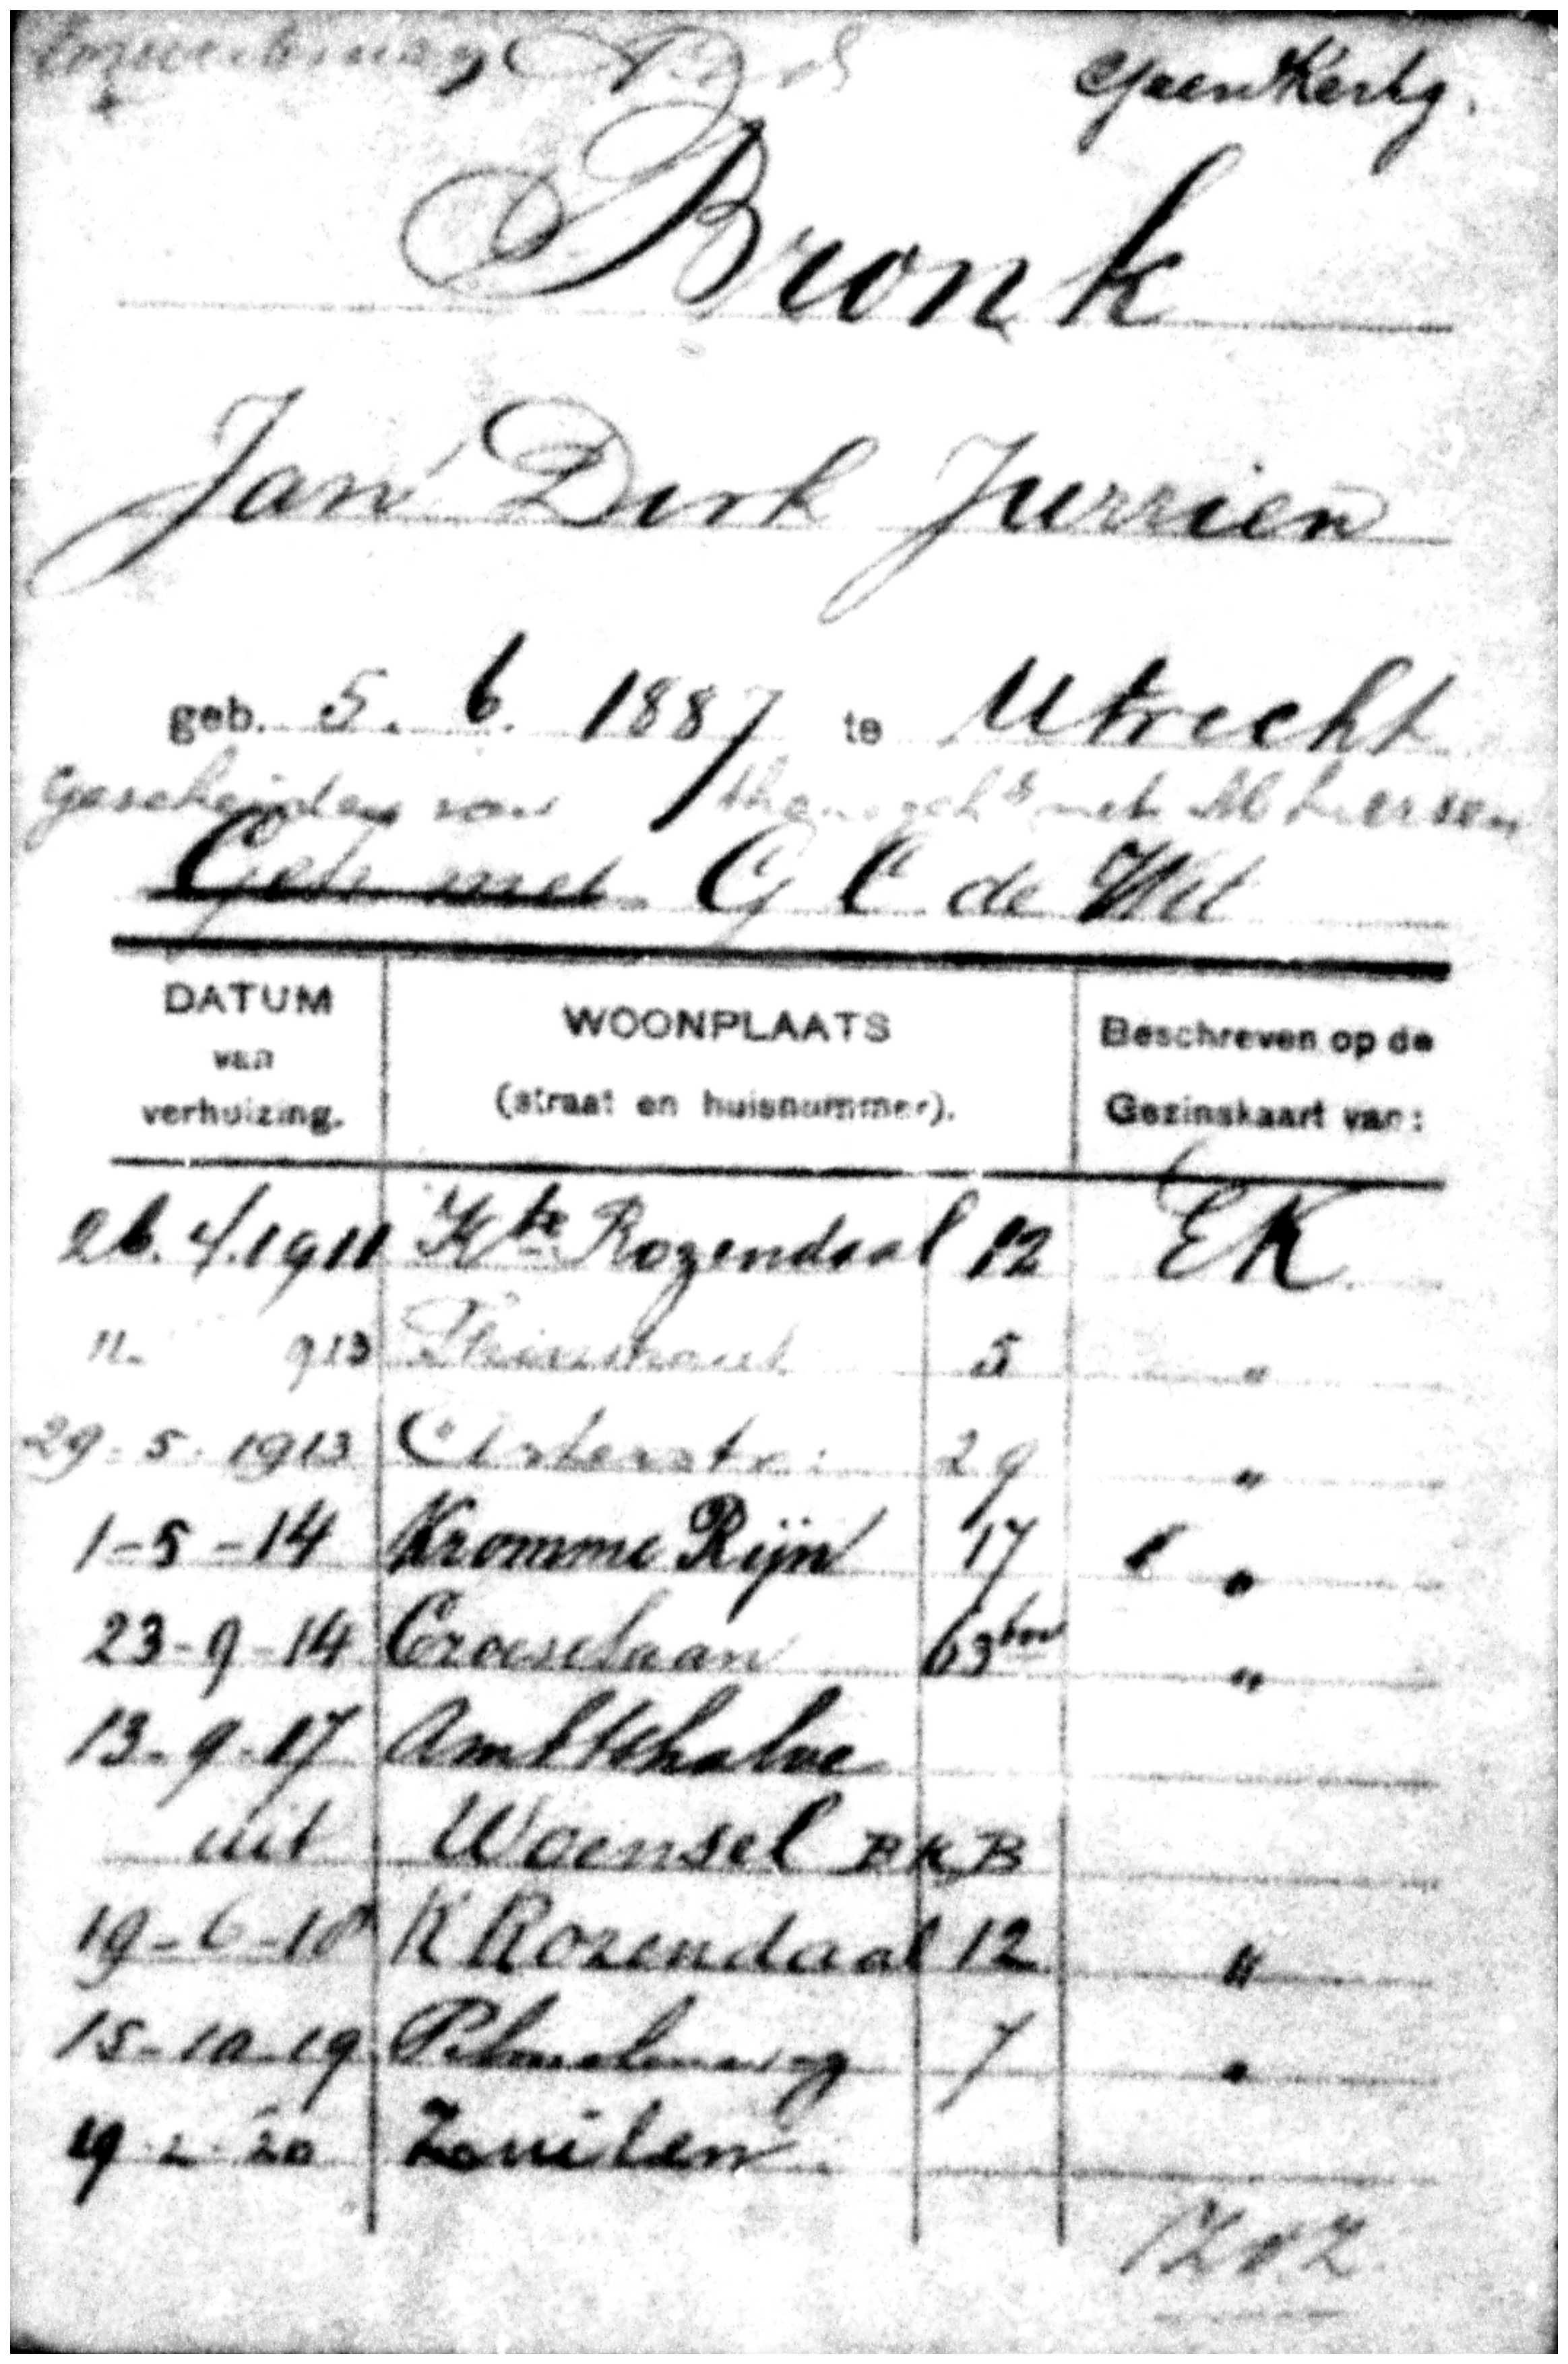 Geen Kerkg.
Bronk
Jan Dirk Jurrien
geb. 5. 6. 1887 te Utrecht
Gescheiden van thans geh^d met M
Geh met G C de Wit
DATUM van verhuizing. WOONPLAATS (straat en huisnummer). Beschreven op de Gezinskaart van:
26. 4. 1911 K^te Rozendaal 12 EK
11. 913 5 "
29-5-1913 Asterstr: 29 "
1-5-14 Kromme Rijn 17 "
23-9-14 Croeselaan 63^bov "
13-9-17 Ambtshalve
uit Woensel BKB
19-6-18 K Rozendaal 12 "
15-10-19 7 "
19-2-20 Zuilen